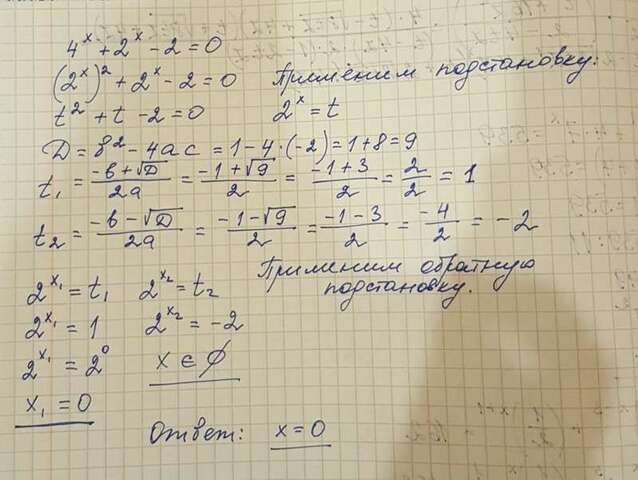 4ˣ + 2ˣ - 2 = 0
(2ˣ)² + 2ˣ - 2 = 0 Применим подстановку:
t² + t - 2 = 0 2ˣ = t
D = b² - 4ac = 1 - 4·(-2) = 1 + 8 = 9
t₁ = (-b + √D)/2a = (-1 + √9)/2 = (-1 + 3)/2 = 2/2 = 1
t₂ = (-b - √D)/2a = (-1 - √9)/2 = (-1 - 3)/2 = -4/2 = -2
Применим обратную
подстановку.
2ˣ¹ = t₁ 2ˣ² = t₂
2ˣ¹ = 1 2ˣ² = -2
2ˣ¹ = 2⁰ x ∈ ∅
x₁ = 0
Ответ: x = 0